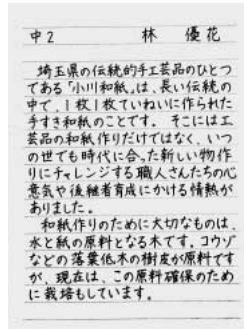 中2　林　優花
埼玉県の伝統的手工芸品のひとつ
である「小川和紙」は、長い伝統の
中で、1枚1枚ていねいに作られた
手すき和紙のことです。そこには工
芸品の和紙作りだけではなく、いつ
の世でも時代に合った新しい物作
りにチャレンジする職人さんたちの心
意気や後継者育成にかける情熱が
ありました。
和紙作りのために大切なものは、
水と紙の原料となる木です。コウゾ
などの落葉低木の樹皮が原料です
が、現在は、この原料確保のため
に栽培もしています。